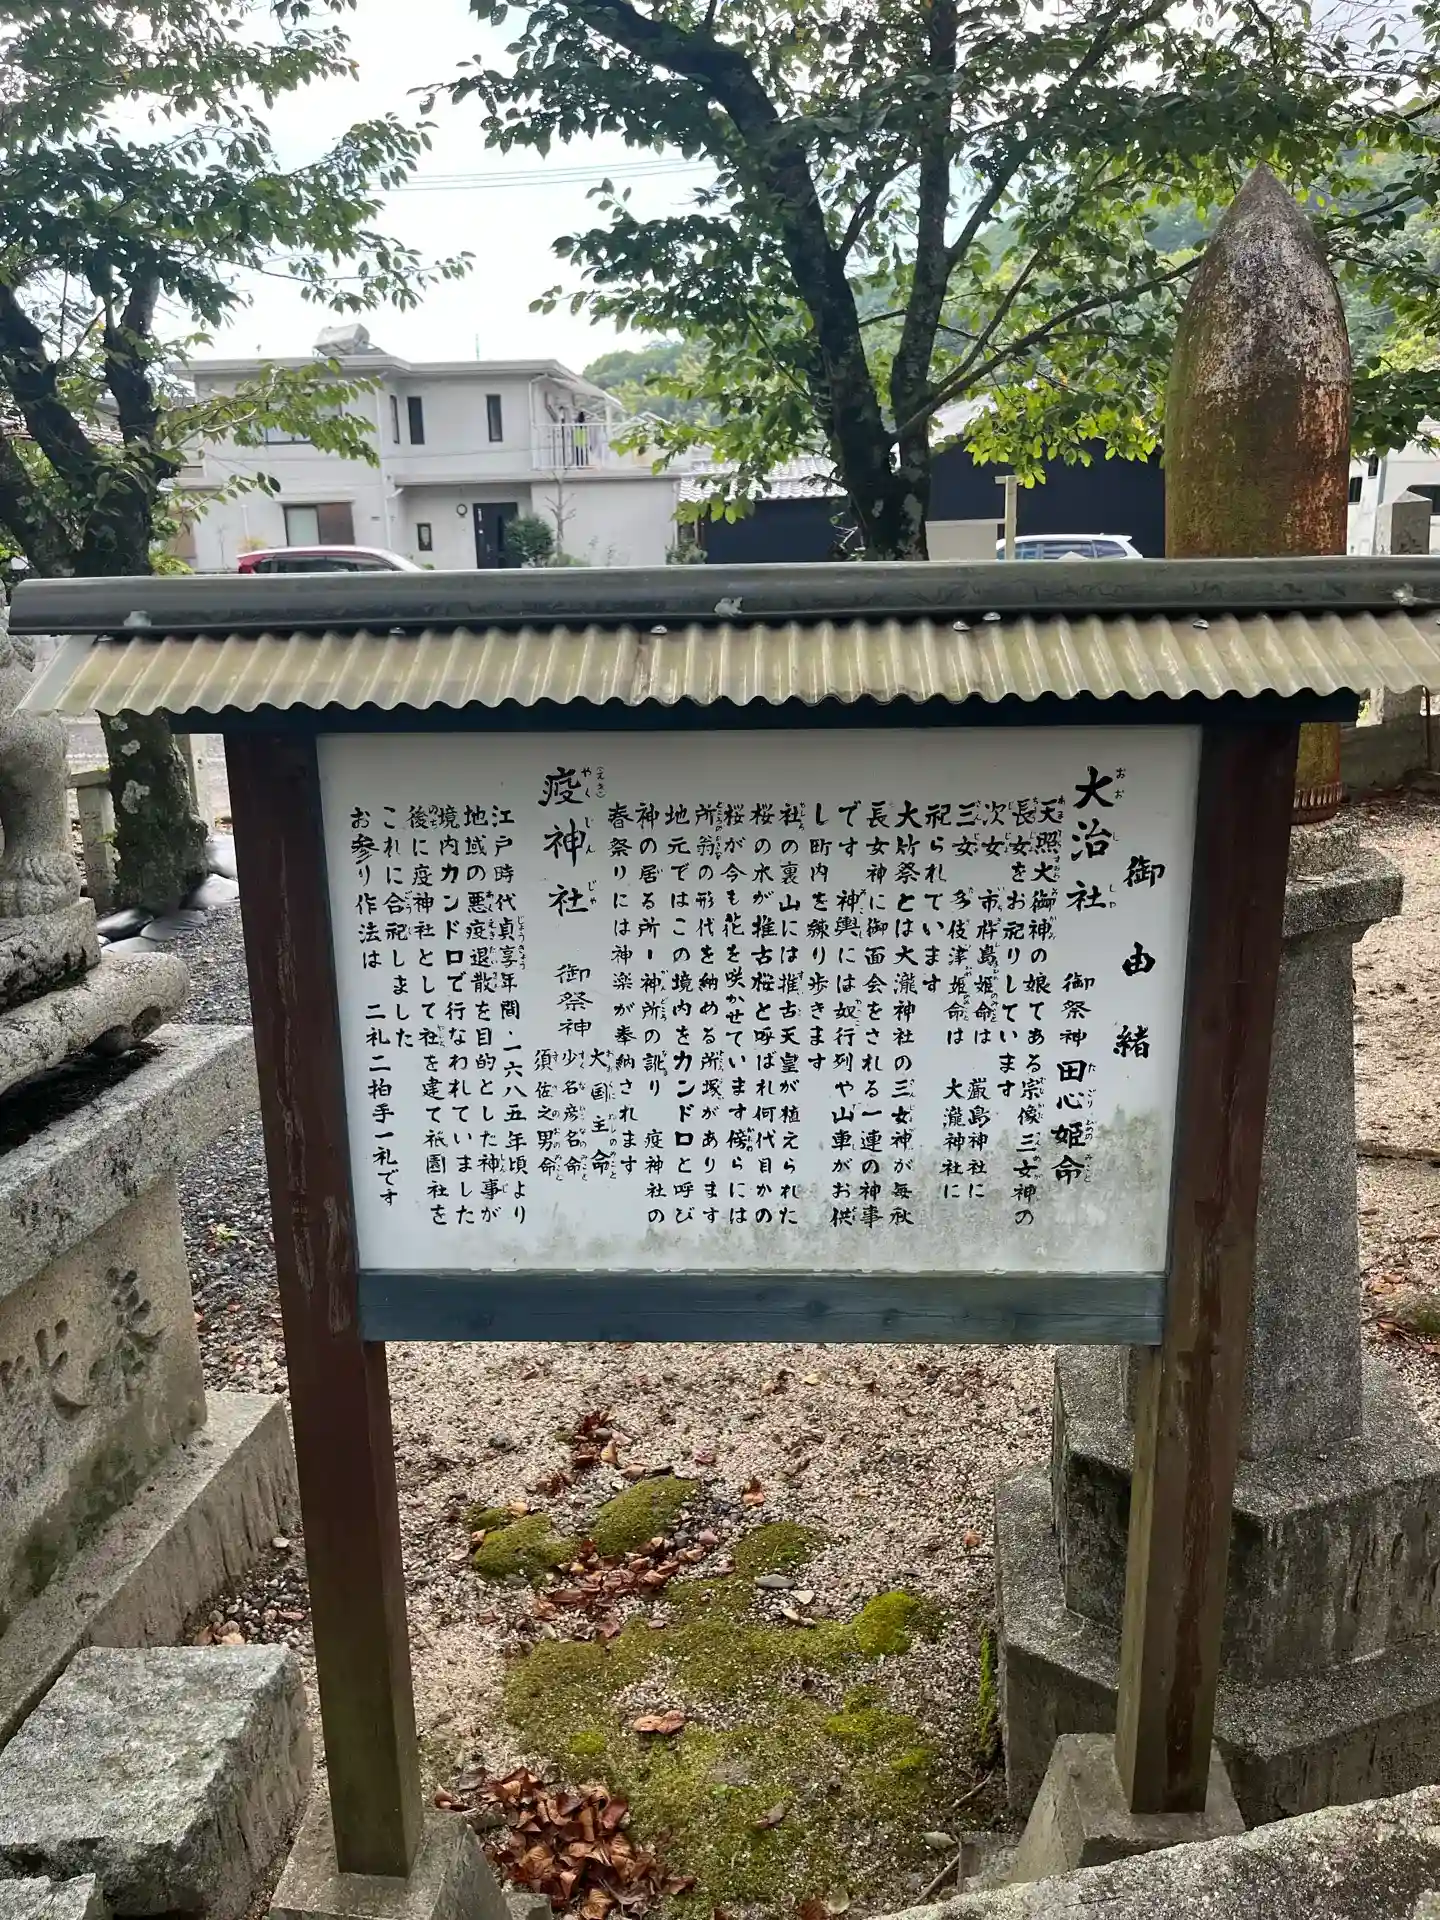 御由緒
大治社 御祭神 田心姫命
天照大御神の娘てある宗像三女神の
長女をお祀りしています
次女 市杵島姫命は 厳島神社に
三女 多伎津姫命は 大瀧神社に
祀られています
大竹祭とは大瀧神社の三女神が毎秋
長女神に御面会をされる一連の神事
です 神輿には奴行列や山車がお供
し町内を練り歩きます
社の裏山には推古天皇が植えられた
桜の水が推古桜と呼ばれ何代目かの
桜が今も花を咲かせています傍らには
所翁の形代を納める所塚があります
地元ではこの境内をカンドロと呼び
神の居る所ー神所の訛り 疫神社の
春祭りには神楽が奉納されます
疫神社 御祭神
大国主命
少名彦名命
須佐之男命
江戸時代貞享年間・一六八五年頃より
地域の悪疫退散を目的とした神事が
境内カンドロで行なわれていました
後に疫神社として社を建て祇園社を
これに合祀しました
お参り作法は 二礼二拍手一礼です